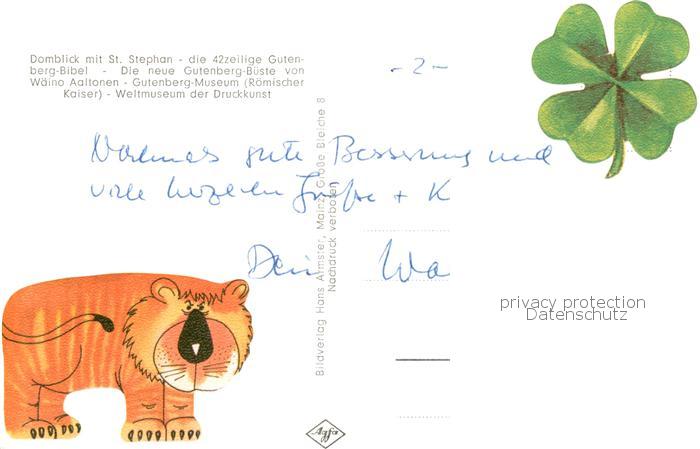 Domblick mit St. Stephan - die 42zeilige Guten-
berg-Bibel - Die neue Gutenberg-Büste von
Wäino Aaltonen - Gutenberg-Museum (Römischer
Kaiser) - Weltmuseum der Druckkunst
- 2 -
Nochmals gute Besserung und
viele herzliche Grüße + K
Dein Wa
Bildverlag Hans Armster, Mainz, Große Bleiche 8
Nachdruck verboten
privacy protection
Datenschutz
Agfa